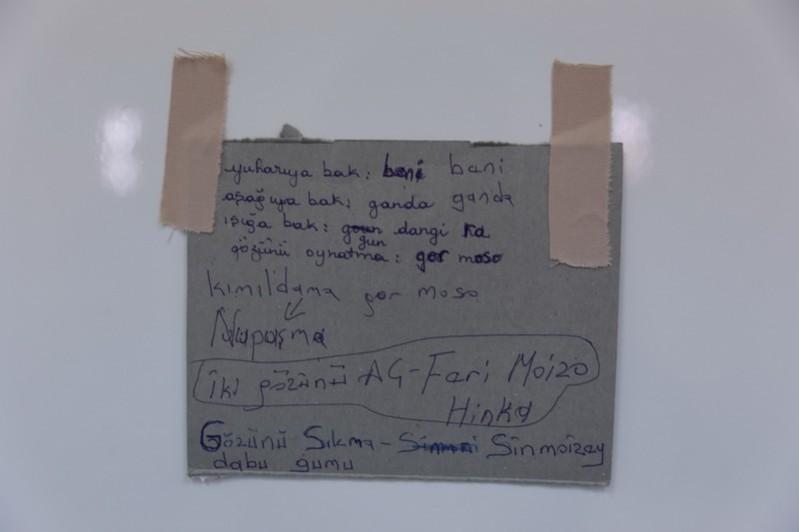 yukarıya bak: beni beni
aşağıya bak: ganda ganda
ışığa bak: gun dangi ka
gözünü oynatma: gor moso
kımıldama gor moso
iki gözünü AG-Feri Moizo
Hinka
Gözünü Sıkma- Sinmoizey
dabu gumu